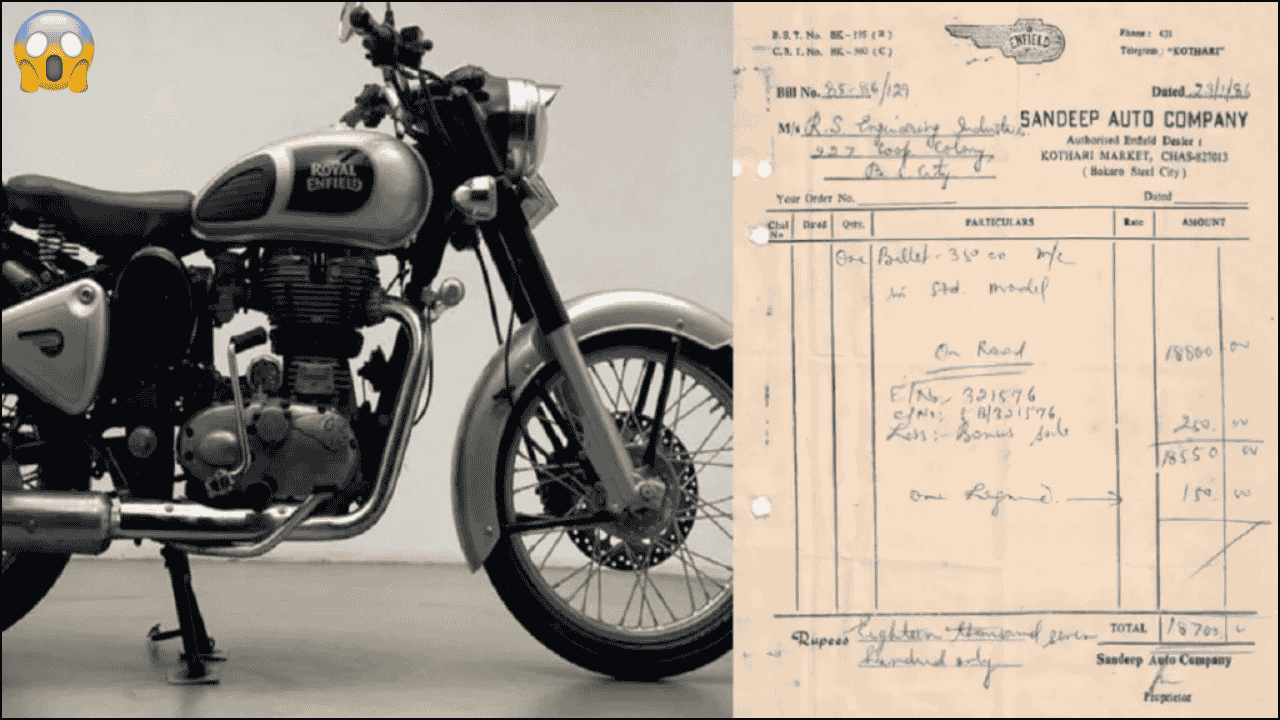 ROYAL
ENFIELD
B.S.T. No. BK-195 (R)
C.S.T. No. BK-360 (C)
ENFIELD
Phone: 431
Telegram: "KOTHARI"
Bill No. 85-86/129
Dated 23/1/86
M/s R.S. Engineering Industries
227 Coop Colony,
B. S. City.
SANDEEP AUTO COMPANY
Authorised Enfield Dealer:
KOTHARI MARKET, CHAS-827013
(Bokaro Steel City)
Your Order No.
Dated
Chal No
Dated
Qnty.
PARTICULARS
Rate
AMOUNT
One Bullet-350 cc m/c
in Std. model
On Road 18800 00
E/No. 321576
C/No: 5 B/321576
Less:- Bonus 250 00
18550 00
One 150 00
Rupees Eighteen thousand seven
hundred only
TOTAL 18700
Sandeep Auto Company
Proprietor